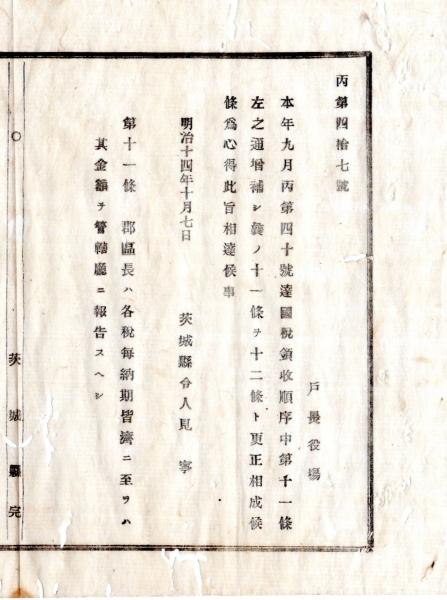 丙第四拾七號
戸長役場
本年九月丙第四十號達國税領收順序中第十一條
左之通増補シ舊ノ十一條ヲ十二條ト更正相成候
條爲心得此旨相達候事
明治十四年十月七日
茨城縣令人見寧
第十一條 郡區長ハ各税毎納期皆濟ニ至ラハ
其金額ヲ管轄廳ニ報告スヘシ
茨城縣